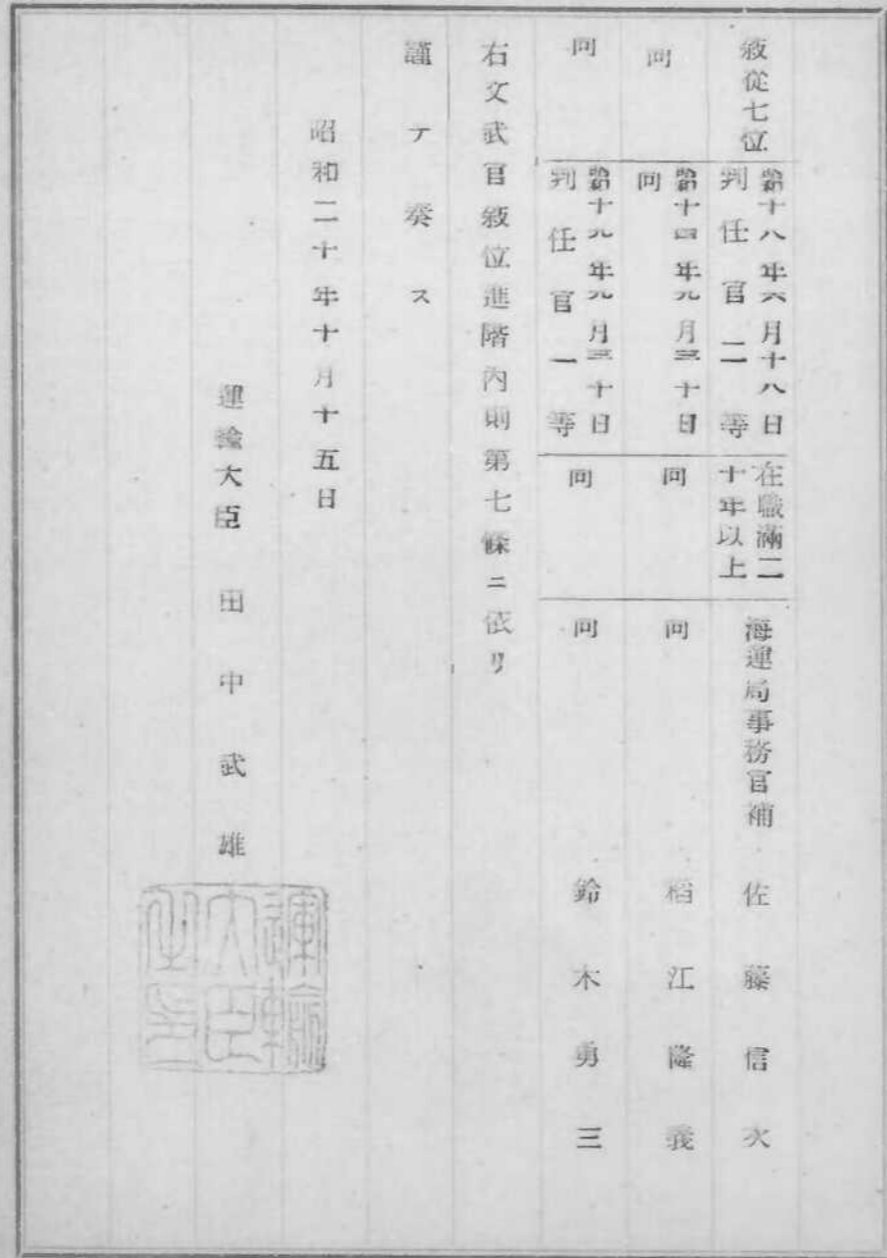 敍從七位
昭和十八年六月十八日
判任官二等
在職滿二
十年以上
海運局事務官補
佐藤信次
同
昭和十四年九月三十日
同
同
同
稻江隆義
同
昭和十九年九月三十日
判任官一等
同
同
鈴木勇三
右文武官敍位進階內則第七條ニ依リ
謹テ奏ス
昭和二十年十月十五日
運輸大臣 田中武雄
運輸
大臣
之印